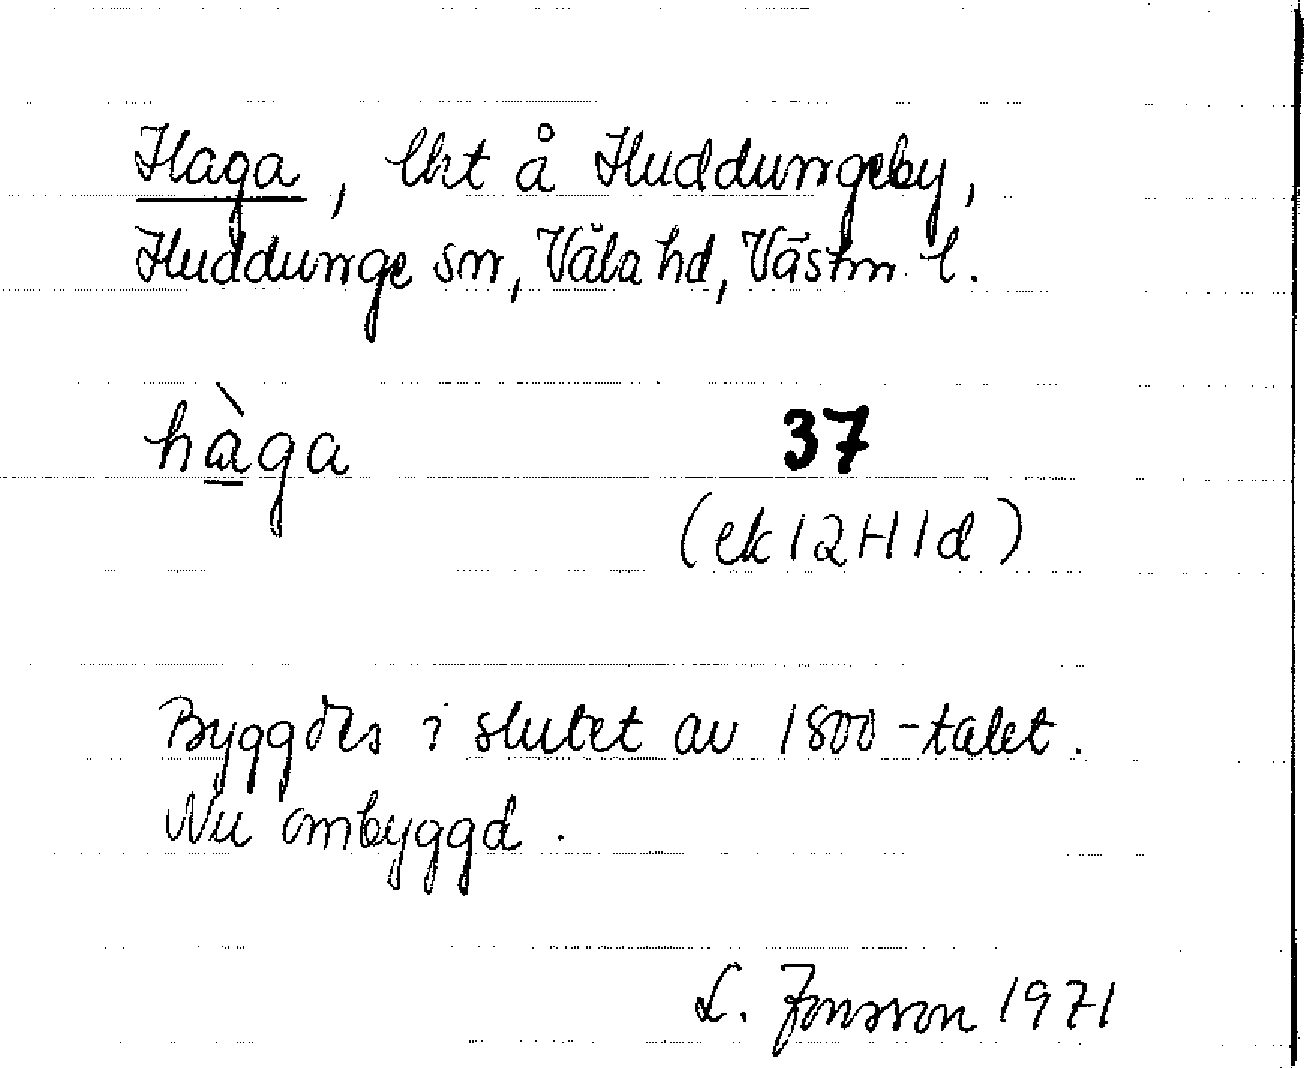 Haga, lht å Huddungeby,
Huddunge sn, Våla hd, Västm. l.
hàga
37
(ek 12H1d)
Byggdes i slutet av 1800-talet.
Nu ombyggd.
L. Jonsson 1971